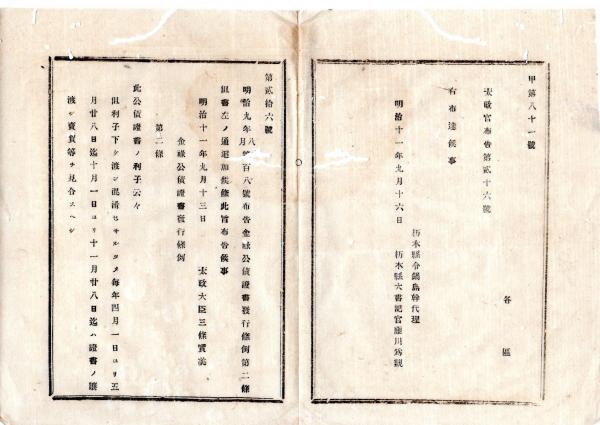 甲第八十一號
各區
太政官布告第貳十六號
右布達候事
明治十一年九月十六日
栃木縣令鍋島幹代理
栃木縣大書記官
第貳拾六號
明治九年八月第百八號布告金祿公債證書發行條例第二條
但書左ノ通追加候條此旨布告候事
明治十一年九月十三日
太政大臣三條實美
金祿公債證書發行條例
第二條
此公債證書ノ利子云々
但利子下ケ渡シ混淆セサルタメ每年四月一日ヨリ五
月廿八日迄十月一日ヨリ十一月廿八日迄ハ證書ノ讓
渡シ賣買等ヲ見合スヘシ